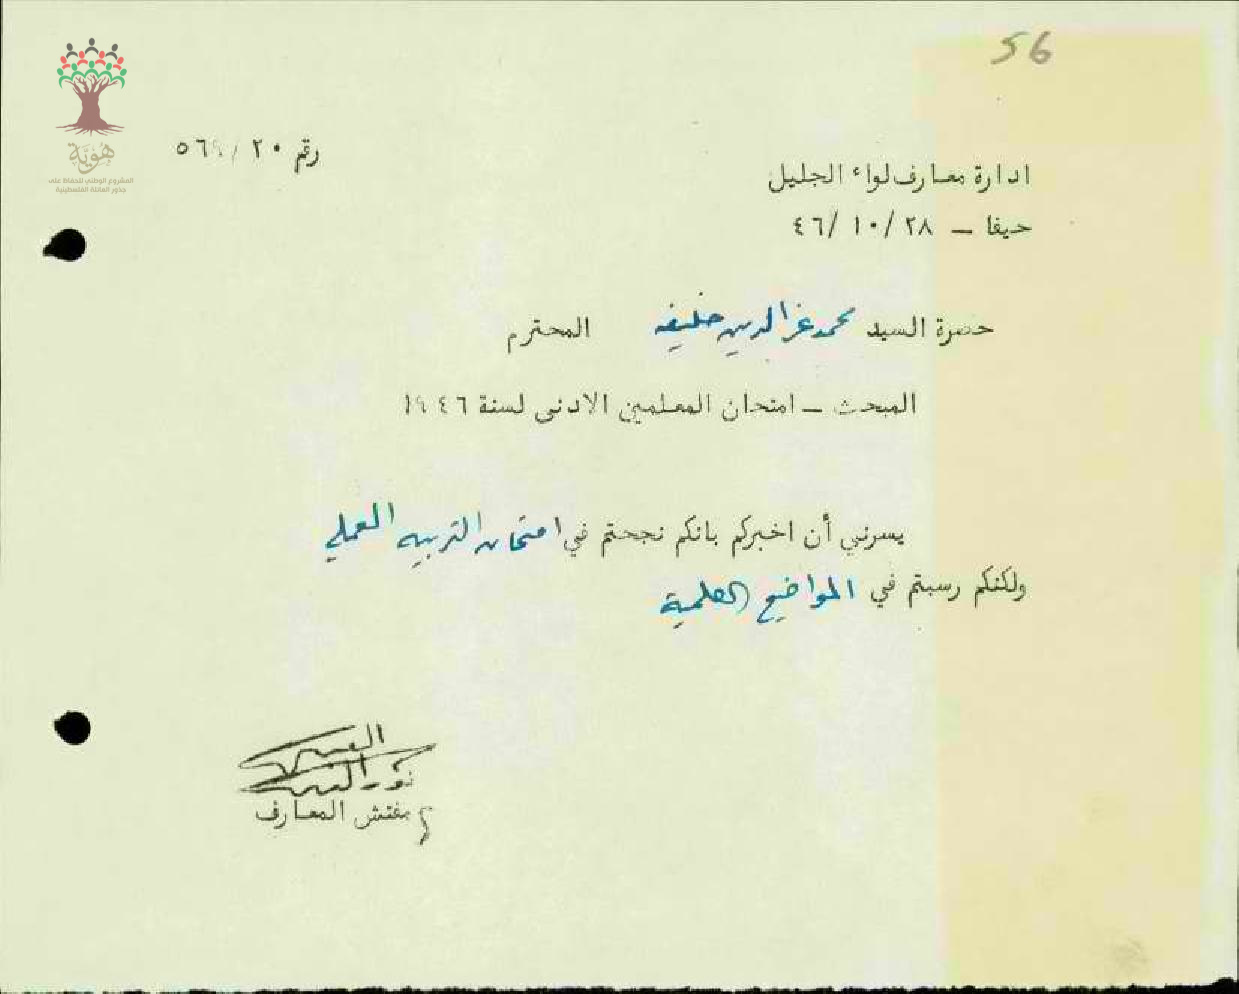 56
هوية
المشروع الوطني للحفاظ على
جذور العائلة الفلسطينية
رقم ٢٠/ ٥٦٩
ادارة معارف لواء الجليل
حيفا – ٢٨/ ١٠/ ٤٦
حضرة السيد محمد عز الدين خليفه المحترم
المبحث – امتحان المعلمين الادنى لسنة ١٩٤٦
يسرني أن اخبركم بانكم نجحتم في امتحان التربيه العملي
ولكنكم رسبتم في المواضيع العلمية
مفتش المعارف